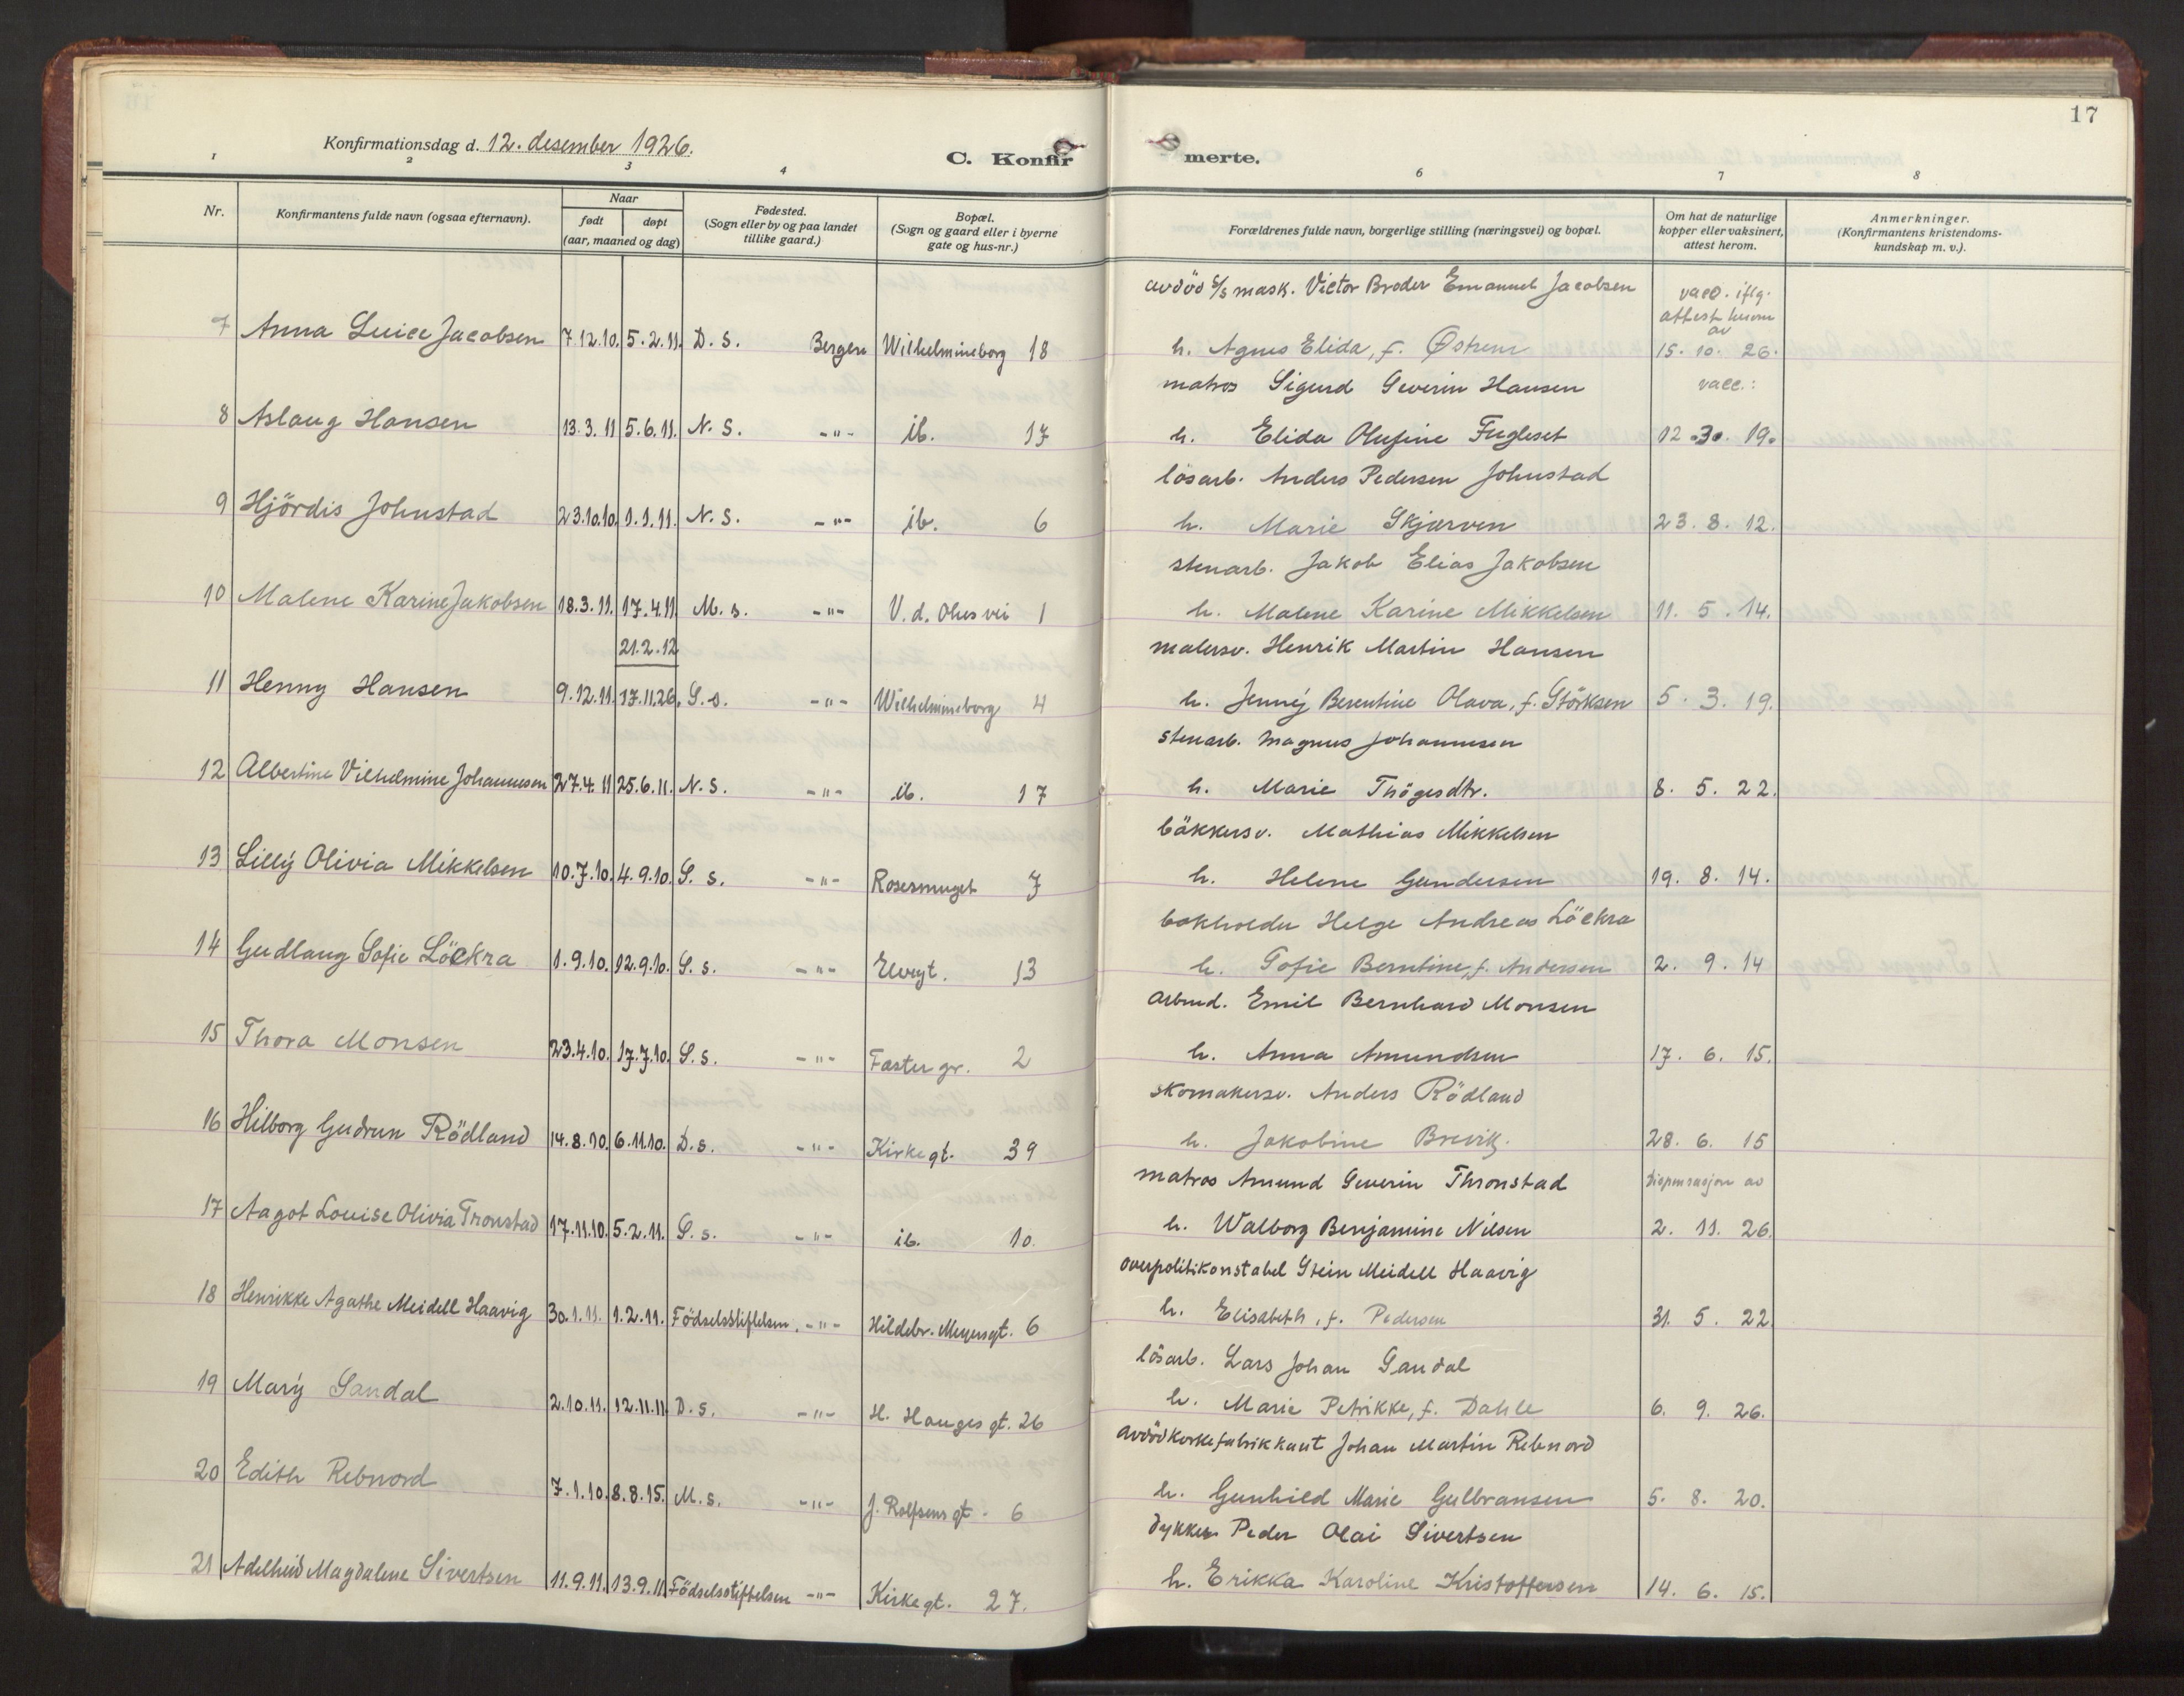 17
Konfirmationsdag d. 12. desember 1926.
C. Konfir merte.
1 2 3 4 6 7 8
Nr. Konfirmantens fulde navn (ogsaa efternavn). Naar født døpt (aar, maaned og dag) Fødested. (Sogn eller by og paa landet tillike gaard.) Bopæl. (Sogn og gaard eller i byerne gate og hus-nr.) Forældrenes fulde navn, borgerlige stilling (næringsvei) og bopæl. Om hat de naturlige kopper eller vaksinert, attest herom. Anmerkninger. (Konfirmantens kristendoms-kundskap m. v.).
avdöd s/s mask. Victor Broder Emanuel Jacobsen vacc. iflg. attest herom av
7 Anna Luice Jacobsen 7.12.10. 5.2.11. D. S. Bergen Wilhelmineborg 18 h. Agnes Elida, f. Østrem 15. 10. 26.
matros Sigurd Severin Hansen vacc.:
8 Aslaug Hansen 13.3.11 5.6.11. N. S. -"- ib. 17 h. Elida Olufine Fugleset 12. 3. 19.
lösarb. Anders Pedersen Johnstad
9 Hjördis Johnstad 23.10.10. 1.1.11. N. S. -"- ib. 6 h. Marie Skjærven 23. 8. 12.
stenarb. Jakob Elias Jakobsen
10 Malene Karine Jakobsen 18.3.11. 17.4.11 M. s. -"- V. d. Ohes vei 1 h. Malene Karine Mikkelsen 11. 5. 14.
21.2.12 malersv. Henrik Martin Hansen
11 Henny Hansen 9.12.11. 17.11.26. S. s. -"- Wilhelmineborg 4 h. Jenny Berentine Olava, f. Störksen 5. 3. 19.
stenarb. Magnus Johannesen
12 Albertine Vilhelmine Johannesen 27.4.11 25.6.11. N. S. -"- ib. 17 h. Marie Thögesdtr. 8. 5. 22.
bäkkersv. Mathias Mikkelsen
13 Lilly Olivia Mikkelsen 10.7.10. 4.9.10. S. s. -"- Rosesmuget 7 h. Helene Gundersen 19. 8. 14.
bokholder Helge Andreas Löckra
14 Gudlaug Sofie Löckra 1.9.10. 12.9.10. S. s. -"- Elvegt. 13 h. Sofie Berntine, f. Andersen 2. 9. 14
arbmd. Emil Bernhard Monsen
15 Thora Monsen 23.4.10. 17.7.10. S. s. -"- Faster gr. 2 h. Anna Amundsen 17. 6. 15.
skomakersv. Anders Rödland
16 Hilborg Gudrun Rödland 14.8.10. 6.11.10. D. s. -"- Kirkegt. 39 h. Jakobine Brevik. 28. 6. 15
matros Amund Severin Thronstad Dispensasjon av
17 Aagot Louise Olivia Tronstad 17.11.10. 5.2.11. S. s. -"- ib. 10. h. Walborg Benjamine Nilsen 2. 11. 26.
overpolitikonstabel Stein Meidell Haavig
18 Henrikke Agathe Meidell Haavig 30.1.11. 1.2.11. Födselsstiftelsen. -"- Hildebr. Meyersgt. 6 h. Elisabeth, f. Pedersen 31. 5. 22.
lösarb. Lars Johan Sandal
19 Mary Sandal 2.10.11. 12.11.11 D. s. -"- H. Hauges gt. 26 h. Marie Petrikke, f. Dahle 6. 9. 26.
avdöd korkefabrikkant Johan Martin Rebnord
20 Edith Rebnord 7.1.10. 8.8.15. M. s. -"- J. Rolfsens gt. 6 h. Gunhild Marie Gulbransen 5. 8. 20.
dykker Peder Olai Sivertsen
21 Adelheid Magdalene Sivertsen 11.9.11. 13.9.11 Födselsstiftelsen -"- Kirkegt. 27. h. Erikka Karoline Kristoffersen 14. 6. 15.